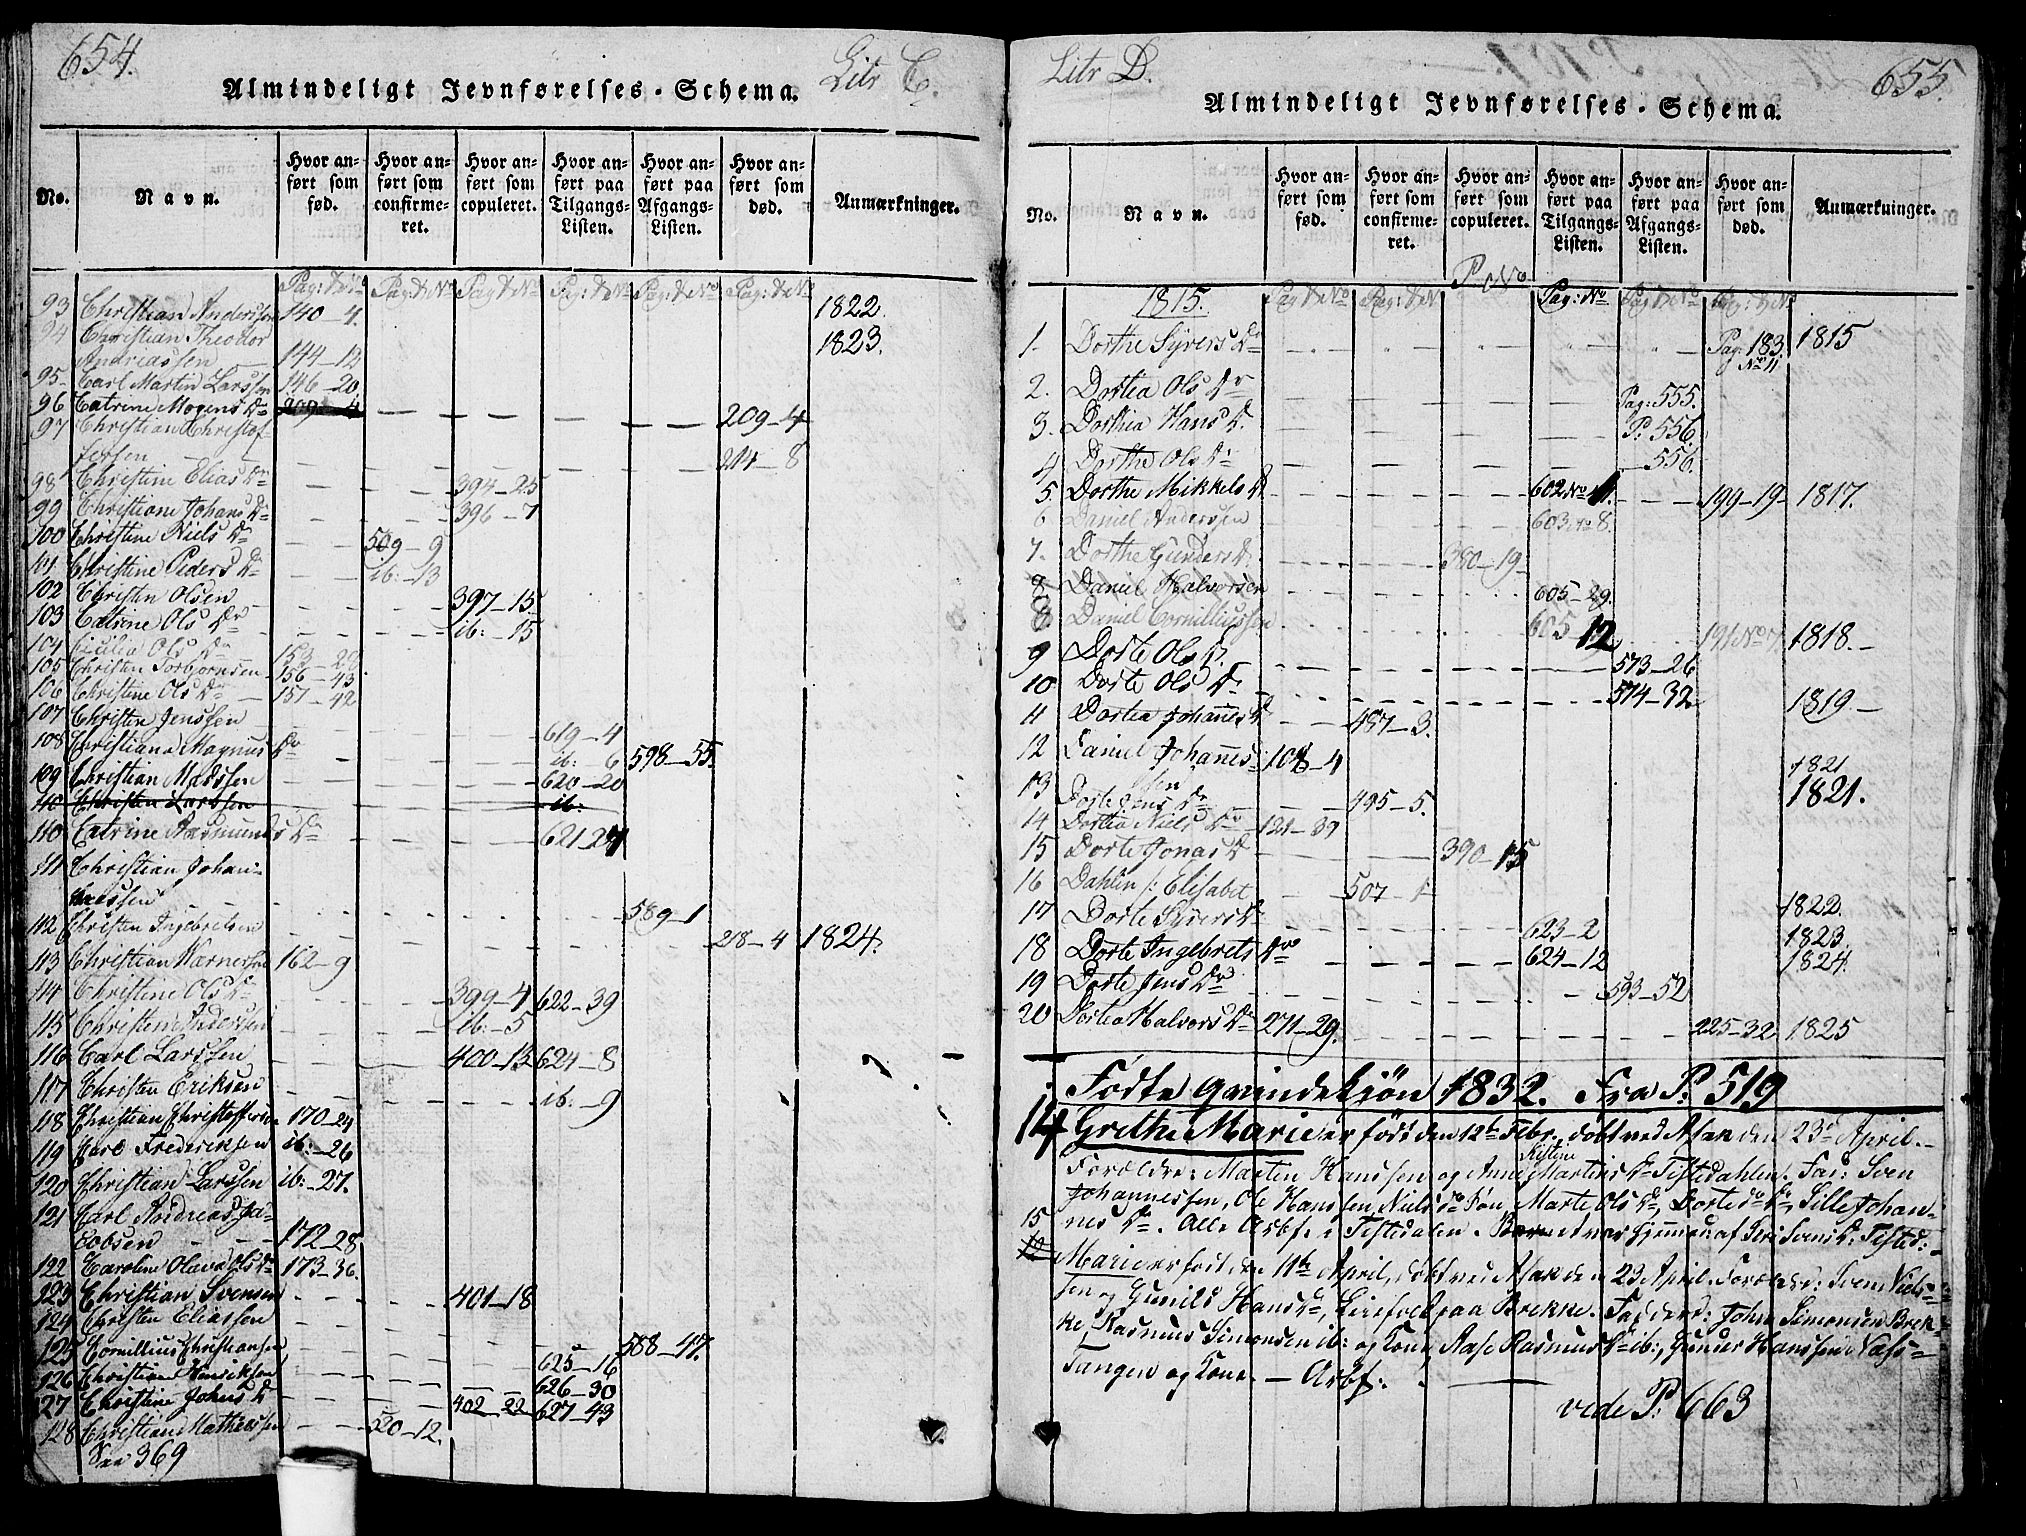 654.
Litr C.
Almindeligt Jevnførelses-Schema.
No.
Navn.
Hvor anført som fød.
Hvor anført som confirmeret.
Hvor anført som copuleret.
Hvor anført paa Tilgangs-Listen.
Hvor anført paa Afgangs-Listen.
Hvor anført som død.
Anmærkninger.
Pag: & No Pag: & No Pag & No Pag: & No Pag: & No Pag: & No
93 Christian Anderssen 140 4. 1822.
94 Christian Theodor 1823.
Andreassen 144-12
95- Carl Martin Larssen 146-20
96 Catrine Mogens Dr 209-4 209-4
97 Christian Christof-
fersen 214-8
98 Christine Elias Dr 394-25
99 Christiane Johans Dr 396-7
100 Christine Niels Dr 509-9
101 Christine Peders Dr ib:-13
102 Christen Olsen 397-15
103 Catrine Ols Dr ib:-15
104 Cicilia Ols Dr 153-
105 Christen Torbjørnsen 156-43
106 Christine Ols Dr 157-42
107 Christen Jenssen 619-4
108 Christiana Magnus Dr ib: 6 598-55.
109 Christian Madssen 620-20
Christen Larssen ib:
110 Catrine Rasmunds Dr 621-24
111 Christian Johan-
nessen 589-1
112 Christen Ingebretsen 218-4 1824.
113 Christian Warnersen 162-9
114 Christine Ols Dr 399-4 622-39
115 Christen Anderssen ib:-5
116 Carl Larssen 400-13 624-8
117 Christen Eriksen ib:-9
118 Christian Christoffersen 170-24
119 Karl Frederiksen ib:-26
120 Christian Larssen ib:-27.
121 Carl Andreas Ja-
cobsen 172-28
122 Caroline Olava Ols Dr 173-36.
123 Christian Svensen 401-18
124 Christen Eliassen
125 Cornillius Christiansen 588-47.
625-16
126 Christian Henriksen 626-30
127 Christine Johns Dr 402-22 627-43
128 Christian Mathiassen 520-12.
See 369
Litr D.
655.
Almindeligt Jevnførelses-Schema.
No.
Navn.
Hvor anført som fød.
Hvor anført som confirmeret.
Hvor anført som copuleret.
Hvor anført paa Tilgangs-Listen.
Hvor anført paa Afgangs-Listen.
Hvor anført som død.
Anmærkninger.
P No
1815. Pag & No Pag: & No Pag: No Pag & No Pag: & No
1. Dorthe Syvers Dr Pag: 183. No 11 1815
2. Dortea Ols Dr Pag: 555.
3. Dorthea Hans D. P: 556.
4 Dorthe Ols Dr 556.
5 Dorthe Mikkels D 602 No 11. 199-19- 1817.
6 Daniel Anderssen 603 No 8.
7. Dorthe Gunders D. 380-19-
8. Daniel Halvorsen 605-29.
8 Daniel Cornilliussen 605 12 191 No 7. 1818.-
9 Dorte Ols D. 573-26
10 Dorte Ols Dr 574-32 1819-
11 Dortea Johannes D 487-3.
12 Daniel Johannes- 108-4 1821
13 sen 1821.
Dorte Jens Dr 495-5.
14 Dortea Niels Dr 121-39
15 Dorte Jonas D 390-15
16 Dahlin /: Elisabet 507-1
17 Dorte Syvers Dr 623-2 1822.
18 Dorte Ingebrets Dr 624-12 1823.
1824.
19 Dorte Jens Dr 593-52
20 Dortea Halvors Dr 271-29. 225-32 1825
Fødte Qvindekjøn 1832. Fra P: 519
14 Grethe Marie er født den 12te Febr., døbt ved Asak den 23d April.-
Kistine
Forældre: Martin Hanssen og Anne Martins Dr Tistedahlen. Fad: Sven
Johannessen, Ole Hanssen, Niels do Søn, Marte Ols Dr, Dorte do Dr, Sille Johan-
15 nes Dr. Alle Arbf. i Tistedalen. Barnet var hjemme af Siri Svens D. Tisted:
Marie er født den 11te April, døbt ved Asak den 23 April. Forældre: Sven Niels-
sen og Gunild Hans Dr, Leiefolk paa Brekke. Fadderе: John Simonsen Brek-
ke, Rasmus Simonsen ib: og Kone, Aase Rasmus Dr ib:, Gunder Hanssen Næss-
Tangen og Kone. - Arbf:
vide P: 663